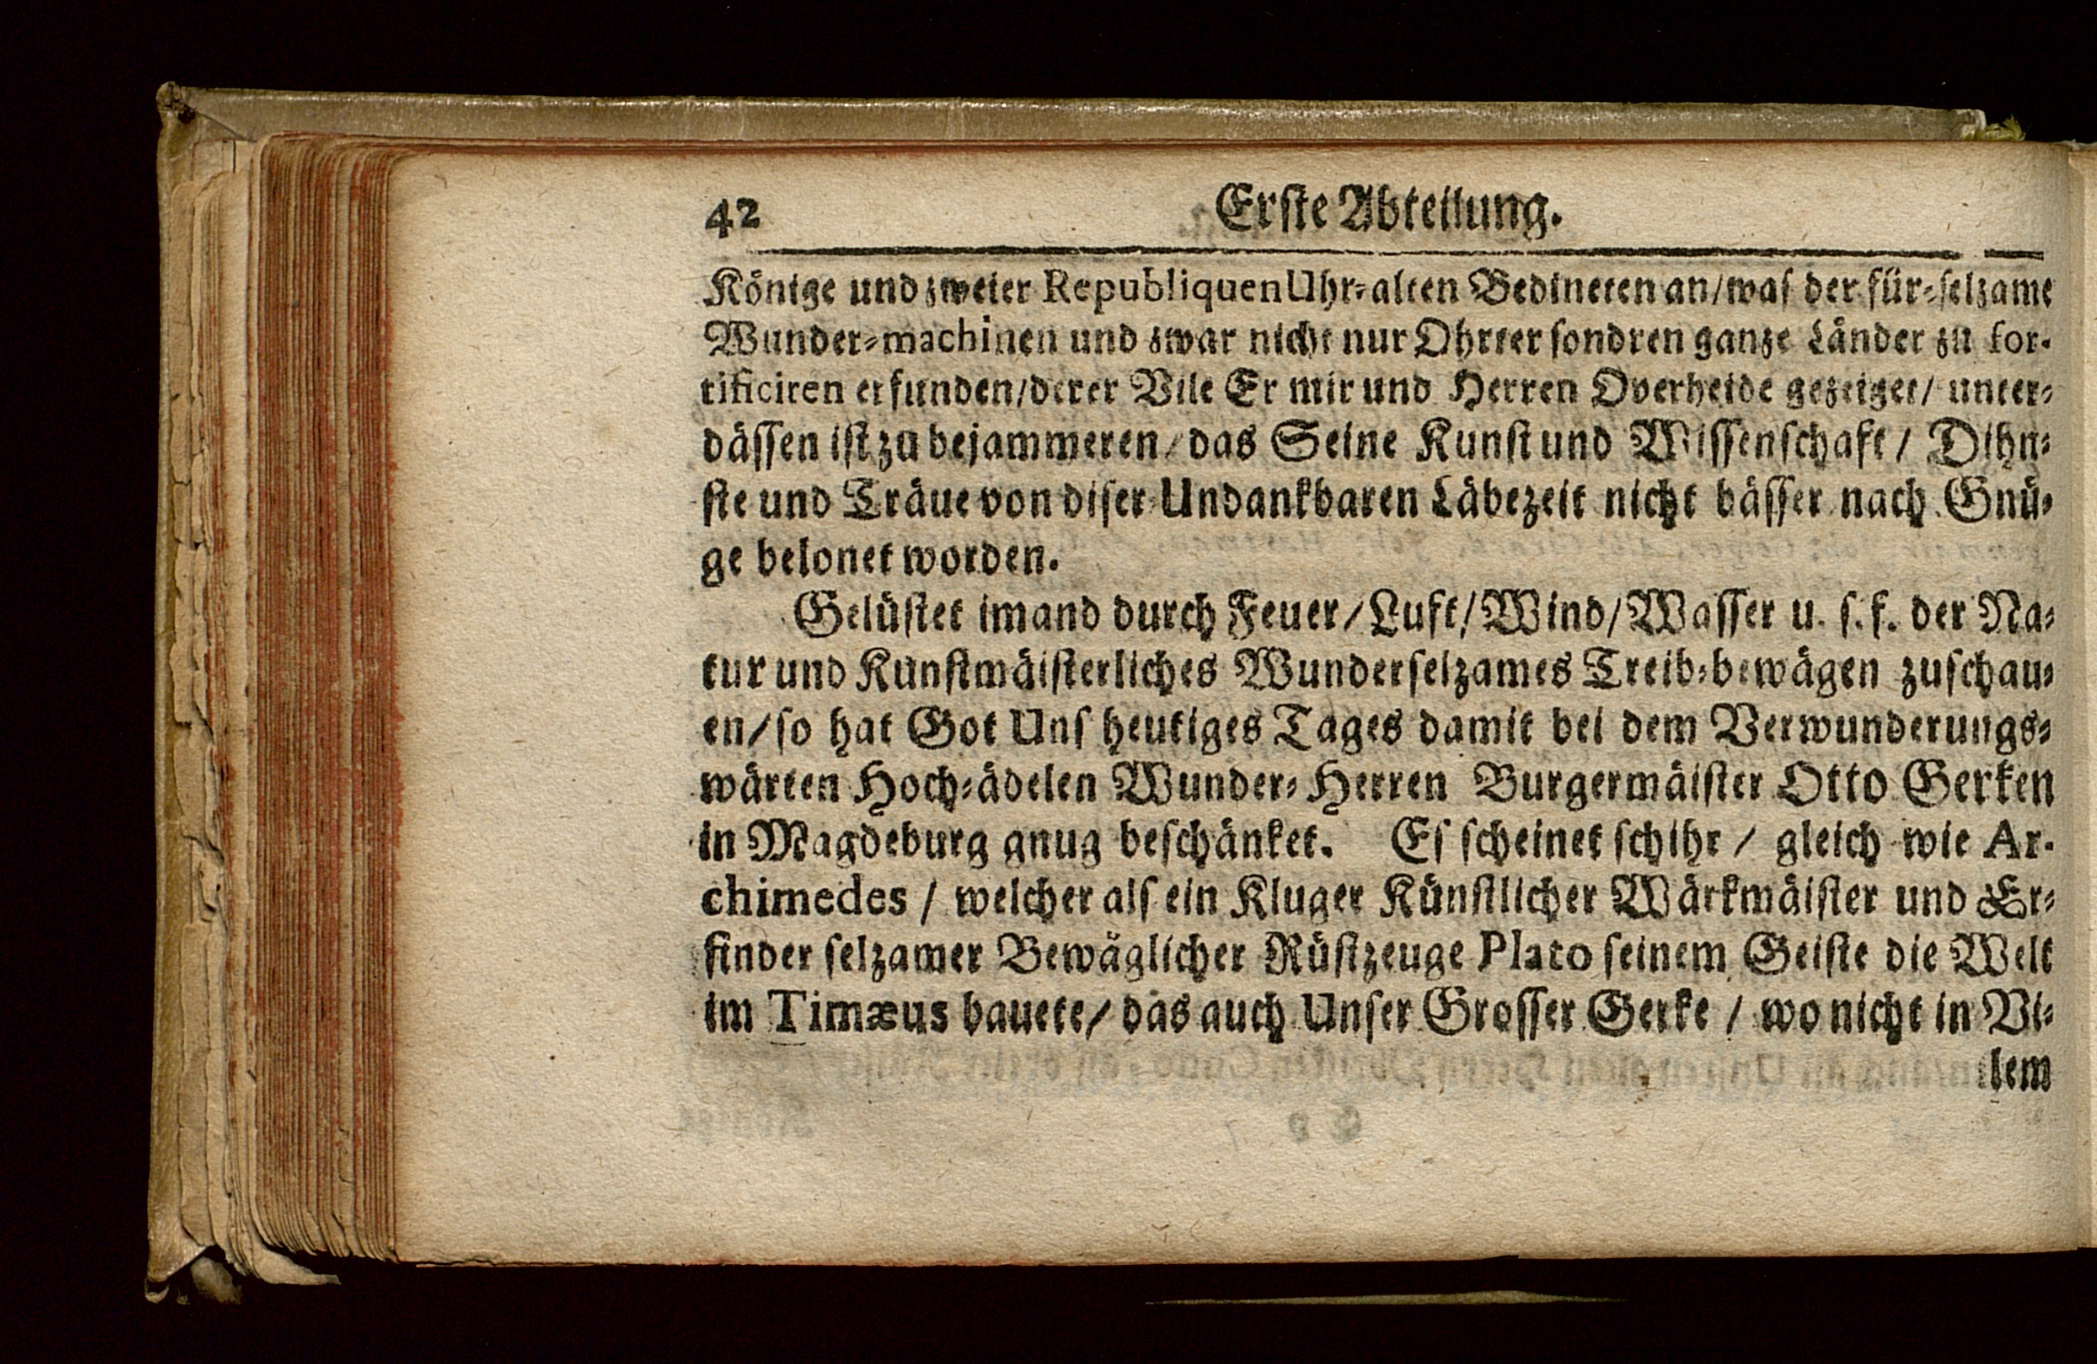 42 Erste Abteilung.
Könige und zweier Republiquen Uhr-alten Bedineten an/was der für-selzame
Wunder-machinen und zwar nicht nur Ohrter sondren ganze Länder zu for-
tificiren erfunden/derer Vile Er mir und Herren Overheide gezeiget/ unter-
dässen ist zu bejammeren/das Seine Kunst und Wissenschaft/ Dihn-
ste und Träue von diser Undankbaren Läbezeit nicht bässer nach Gnü-
ge belonet worden.
Gelüstet imand durch Feuer/Luft/Wind/Wasser u. s. f. der Na-
tur und Kunstmäisterliches Wunderselzames Treib-bewägen zuschau-
en/so hat Got Uns heutiges Tages damit bei dem Verwunderungs-
wärten Hoch-ädelen Wunder-Herren Burgermäister Otto Gerken
in Magdeburg gnug beschänket. Es scheinet schihr / gleich wie Ar-
chimedes / welcher als ein Kluger Künstlicher Wärkmäister und Er-
finder selzamer Bewäglicher Rüstzeuge Plato seinem Geiste die Welt
im Timæus bauete/das auch Unser Grosser Gerke / wo nicht in Vi-
lem